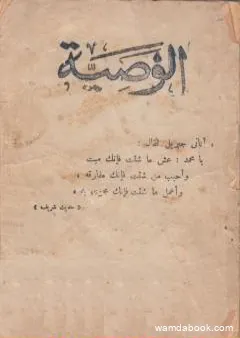 الوصية
« أتاني جبريل فقال :
يا محمد : عش ما شئت فإنك ميت
وأحبب من شئت فإنك مفارقه ،
وأعمل ما شئت فإنك مجزي به »
« حديث شريف »
wamdabook.com